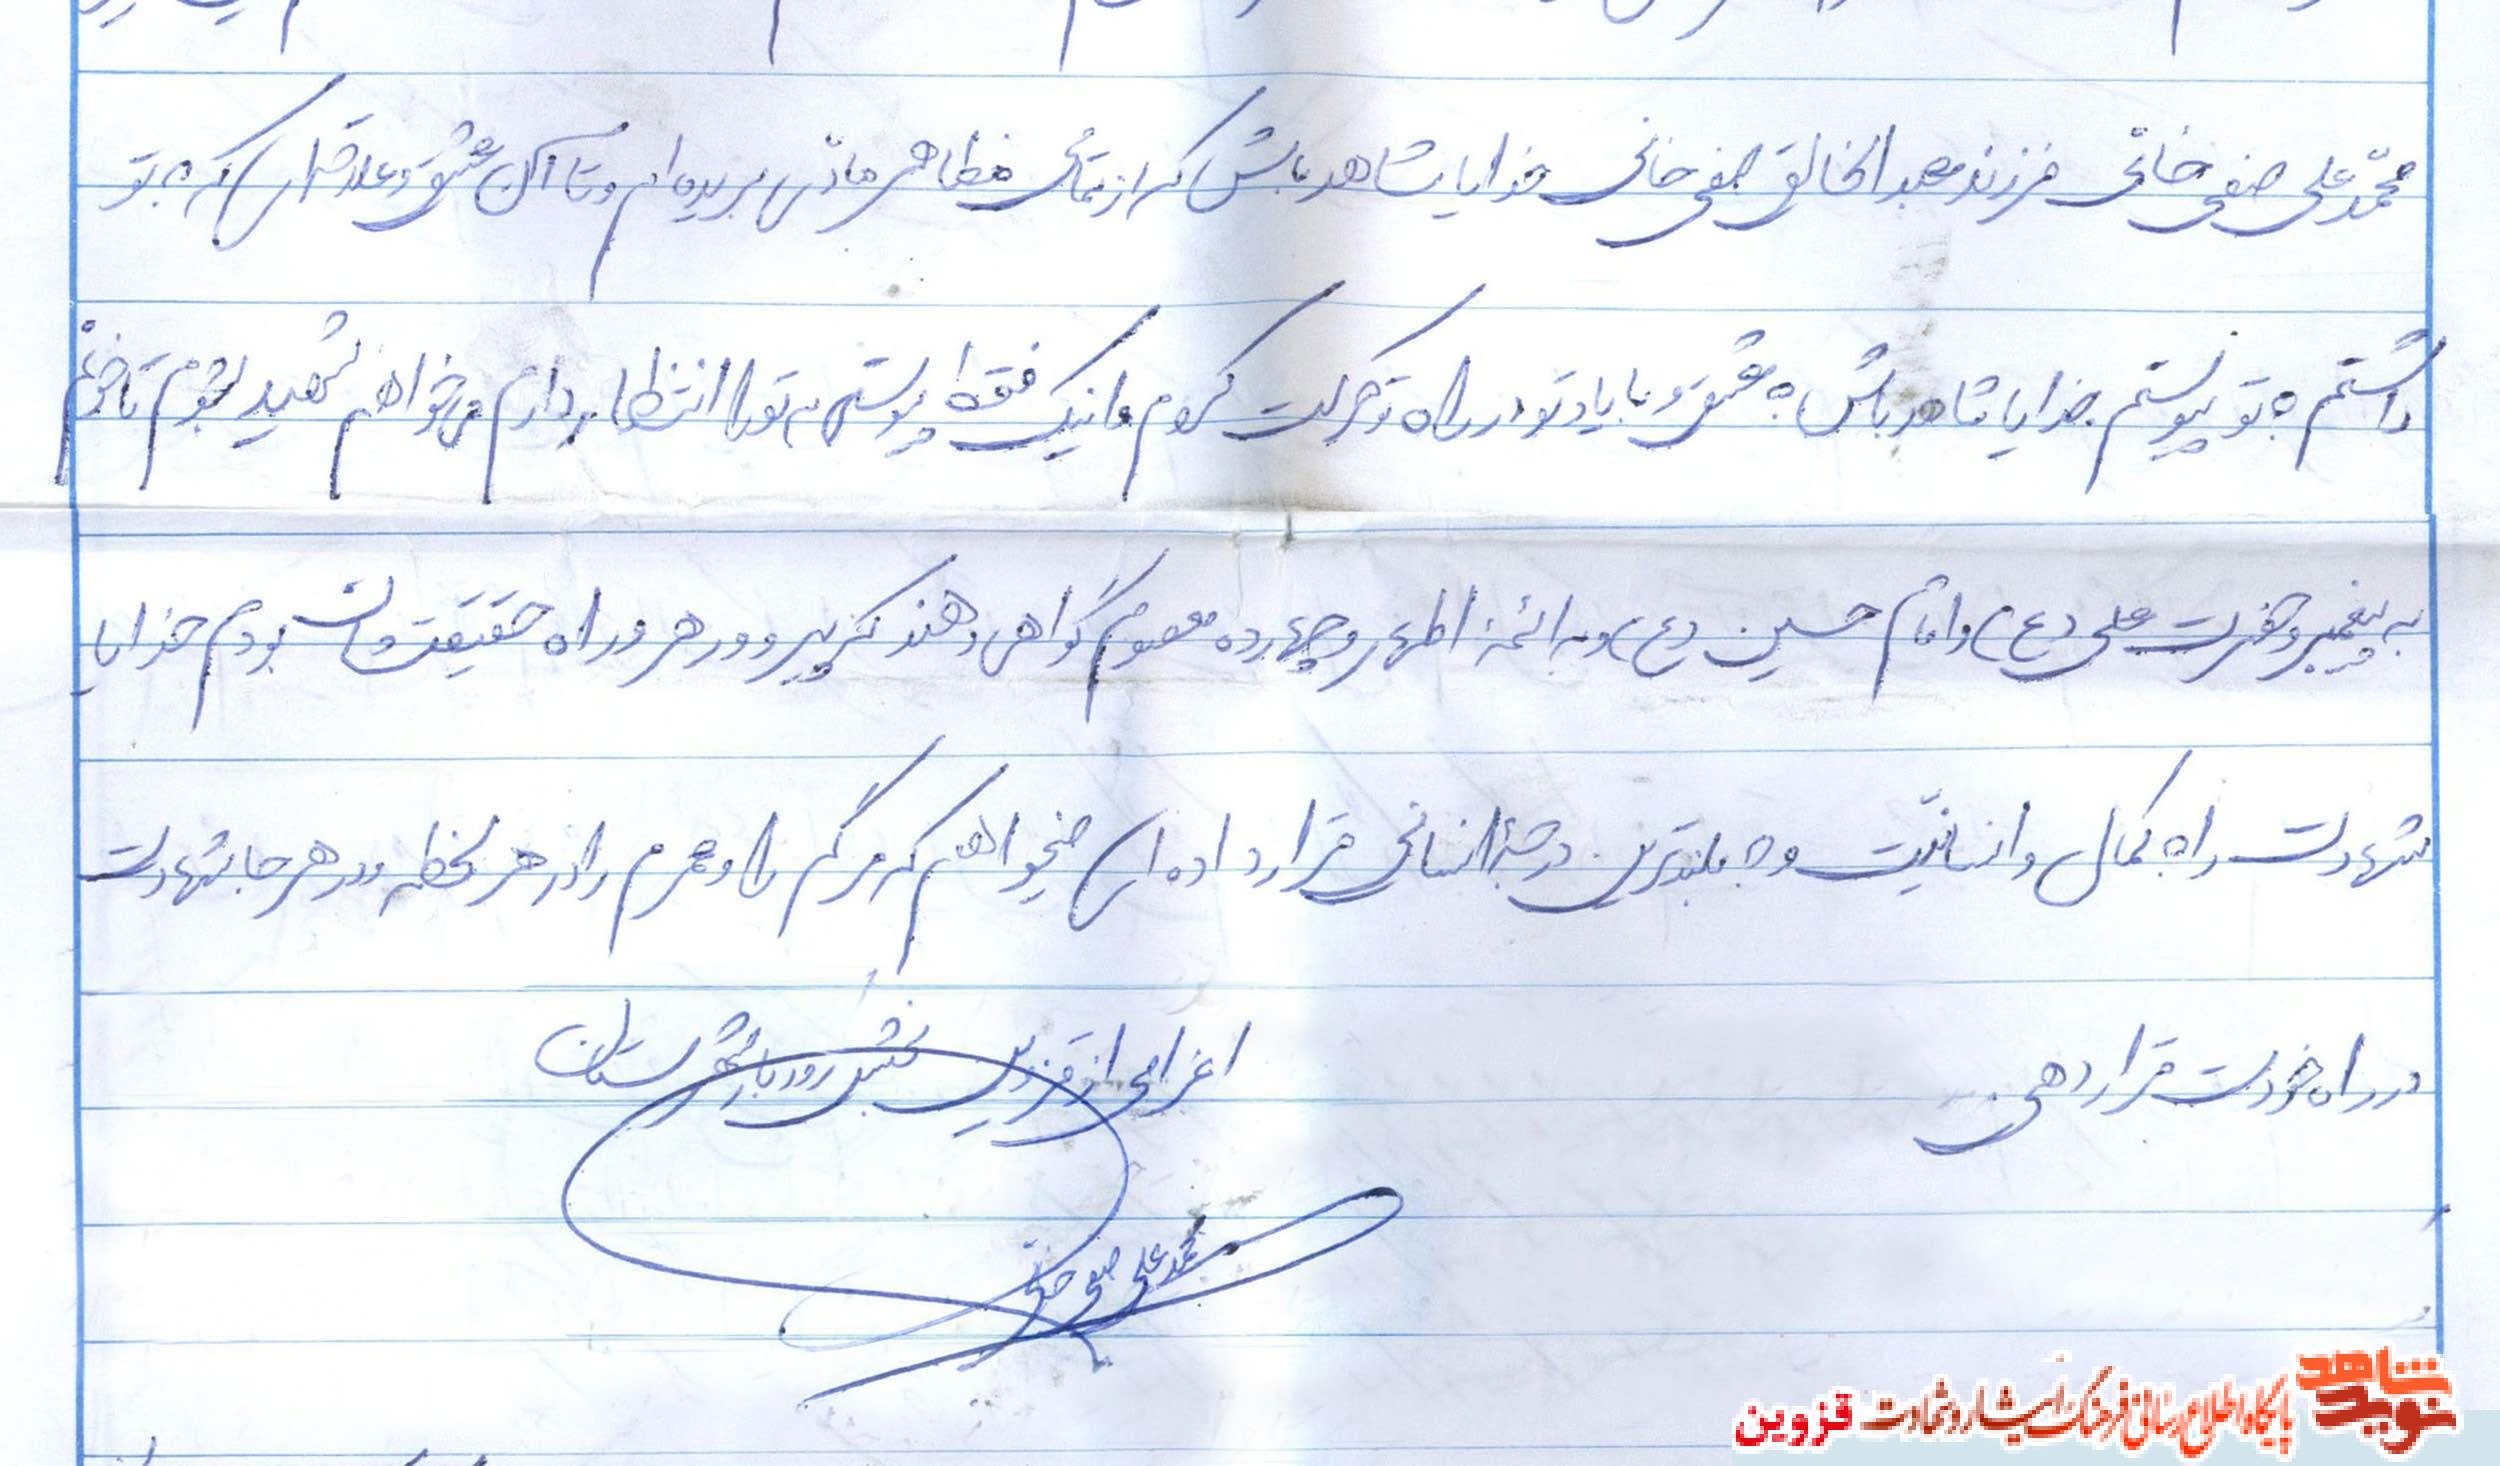 محمّد علی صفی خانی فرزند عبدالخالق صفی خانی خدایا شاهد باش که از تمامی مظاهر مادّی بریده ام و تا آن عشق و علاقه ای که به تو
داشتم به تو پیوستم خدایا شاهد باش به عشق و با یاد تو در راه تو حرکت کردم و اینک فقط پیوستن به تو را انتظار دارم می خواهم شهید بشوم تا خونم
به پیغمبر و حضرت علی (ع) و امام حسین (ع) و به ائمه اطهار و چهارده معصوم گواهی دهند که پیرو و رهرو راه حقیقت شان بودم خدایا
شهادت را به کمال و انسانیّت و به بلندترین درجه انسانی قرار داده ای میخواهم که مرگم را و عمرم را در هر لحظه و در هر جا شهادت
در راه خودت قرار دهی.
اعزامی از قزوین بخش رودبار شهرستان
محمد علی صفی خانی
نوید شاهد
پایگاه اطلاع رسانی فرهنگ ایثار و شهادت قزوین